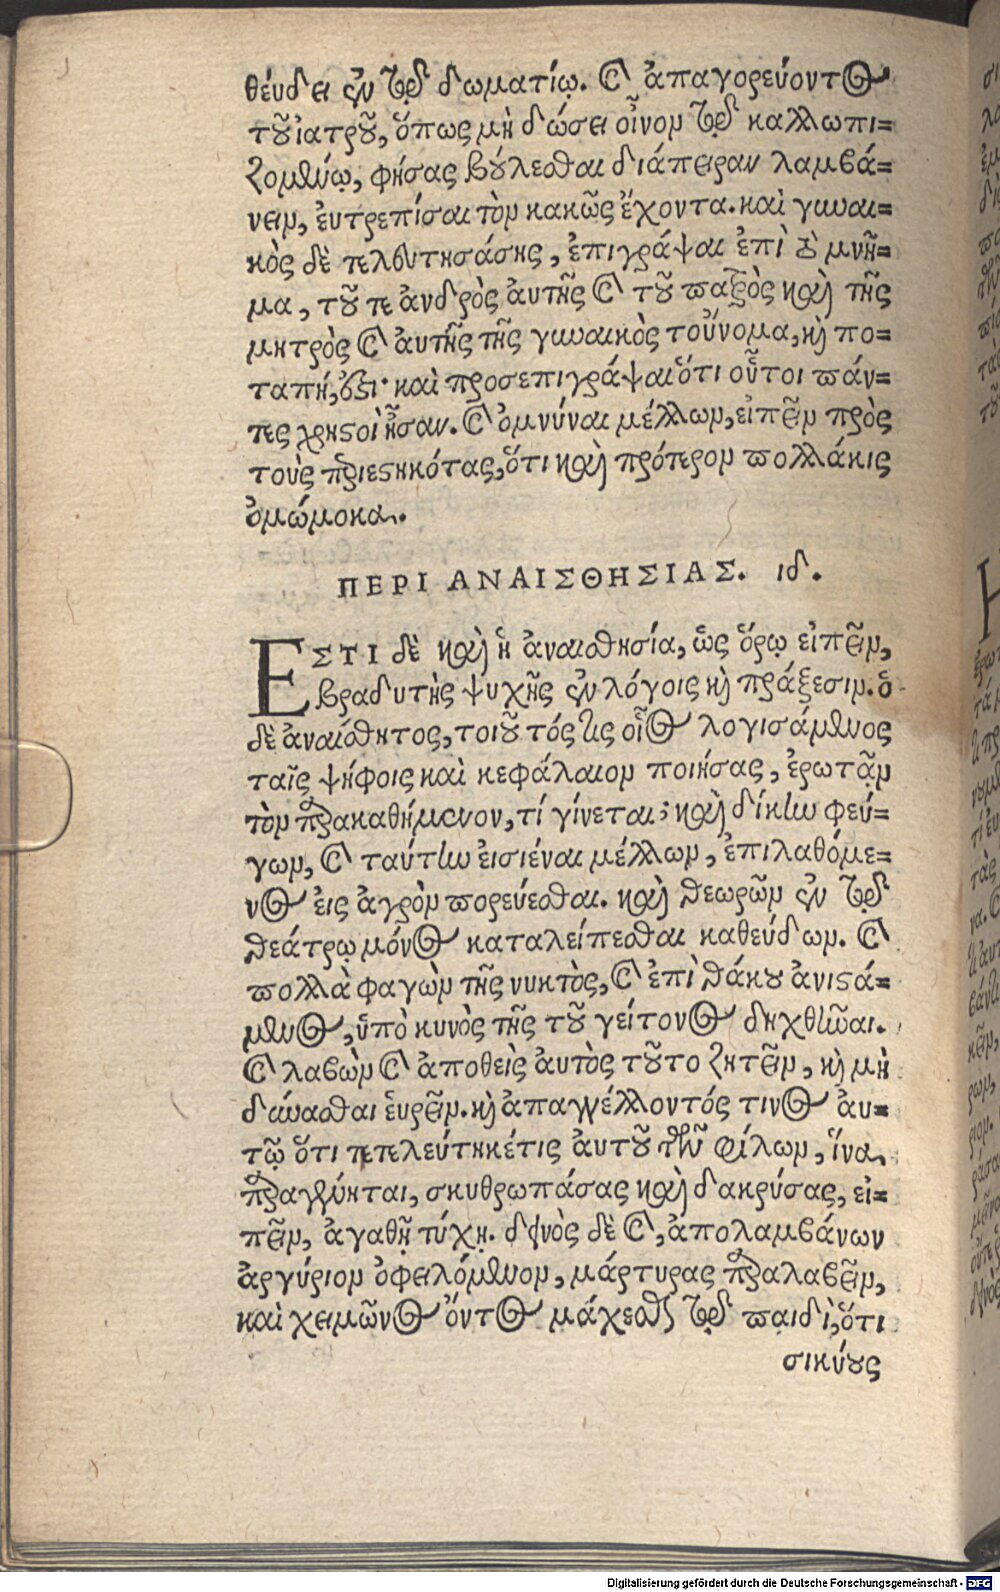 θεύδει ἐν τῷ δωματίῳ. καὶ ἀπαγορεύοντος
τοῦ ἰατροῦ, ὅπως μὴ δώσει οἶνον τῷ καλλωπι=
ζομένῳ, φήσας βούλεσθαι διάπειραν λαμβά=
νειν, εὐτρεπίσαι τὸν κακῶς ἔχοντα. καὶ γυναι=
κὸς δὲ τελευτησάσης, ἐπιγράψαι ἐπὶ τὸ μνῆ=
μα, τοῦ τε ἀνδρὸς αὐτῆς καὶ τοῦ πατρὸς καὶ τῆς
μητρὸς καὶ αὐτῆς τῆς γυναικὸς τοὔνομα, καὶ πο=
ταπή, ἐστι· καὶ προσεπιγράψαι ὅτι οὗτοι πάν=
τες χρηστοὶ ἦσαν. καὶ ὀμνύναι μέλλων, εἰπεῖν πρὸς
τοὺς περιεστηκότας, ὅτι καὶ πρότερον πολλάκις
ὀμώμοκα.
ΠΕΡΙ ΑΝΑΙΣΘΗΣΙΑΣ. ιδ.
ΕΣΤΙ δὲ καὶ ἡ ἀναισθησία, ὡς ὅρῳ εἰπεῖν,
βραδυτὴς ψυχῆς ἐν λόγοις καὶ πράξεσιν. ὁ
δὲ ἀναίσθητος, τοιοῦτός τις οἷος λογισάμενος
ταῖς ψήφοις καὶ κεφάλαιον ποιήσας, ἐρωτᾷν
τὸν παρακαθήμενον, τί γίνεται; καὶ δίκην φεύ=
γων, καὶ ταύτην εἰσιέναι μέλλων, ἐπιλαθόμε=
νος εἰς ἀγρὸν πορεύεσθαι. καὶ θεωρῶν ἐν τῷ
θεάτρῳ μόνος καταλείπεσθαι καθεύδων. καὶ
πολλὰ φαγὼν τῆς νυκτὸς, καὶ ἐπὶ θάκου ἀνιστά=
μενος, ὑπὸ κυνὸς τῆς τοῦ γείτονος δηχθῆναι.
καὶ λαβὼν καὶ ἀποθεὶς αὐτὸς τοῦτο ζητεῖν, καὶ μὴ
δύνασθαι εὑρεῖν. καὶ ἀπαγγέλλοντός τινος αὐ=
τῷ ὅτι τετελεύτηκέ τις αὐτοῦ τῶν φίλων, ἵνα
παραγένηται, σκυθρωπάσας καὶ δακρύσας, εἰ=
πεῖν, ἀγαθῇ τύχῃ. δεινὸς δὲ καὶ, ἀπολαμβάνων
ἀργύριον ὀφειλόμενον, μάρτυρας παραλαβεῖν,
καὶ χειμῶνος ὄντος μάχεσθαι τῷ παιδὶ, ὅτι
σικύους